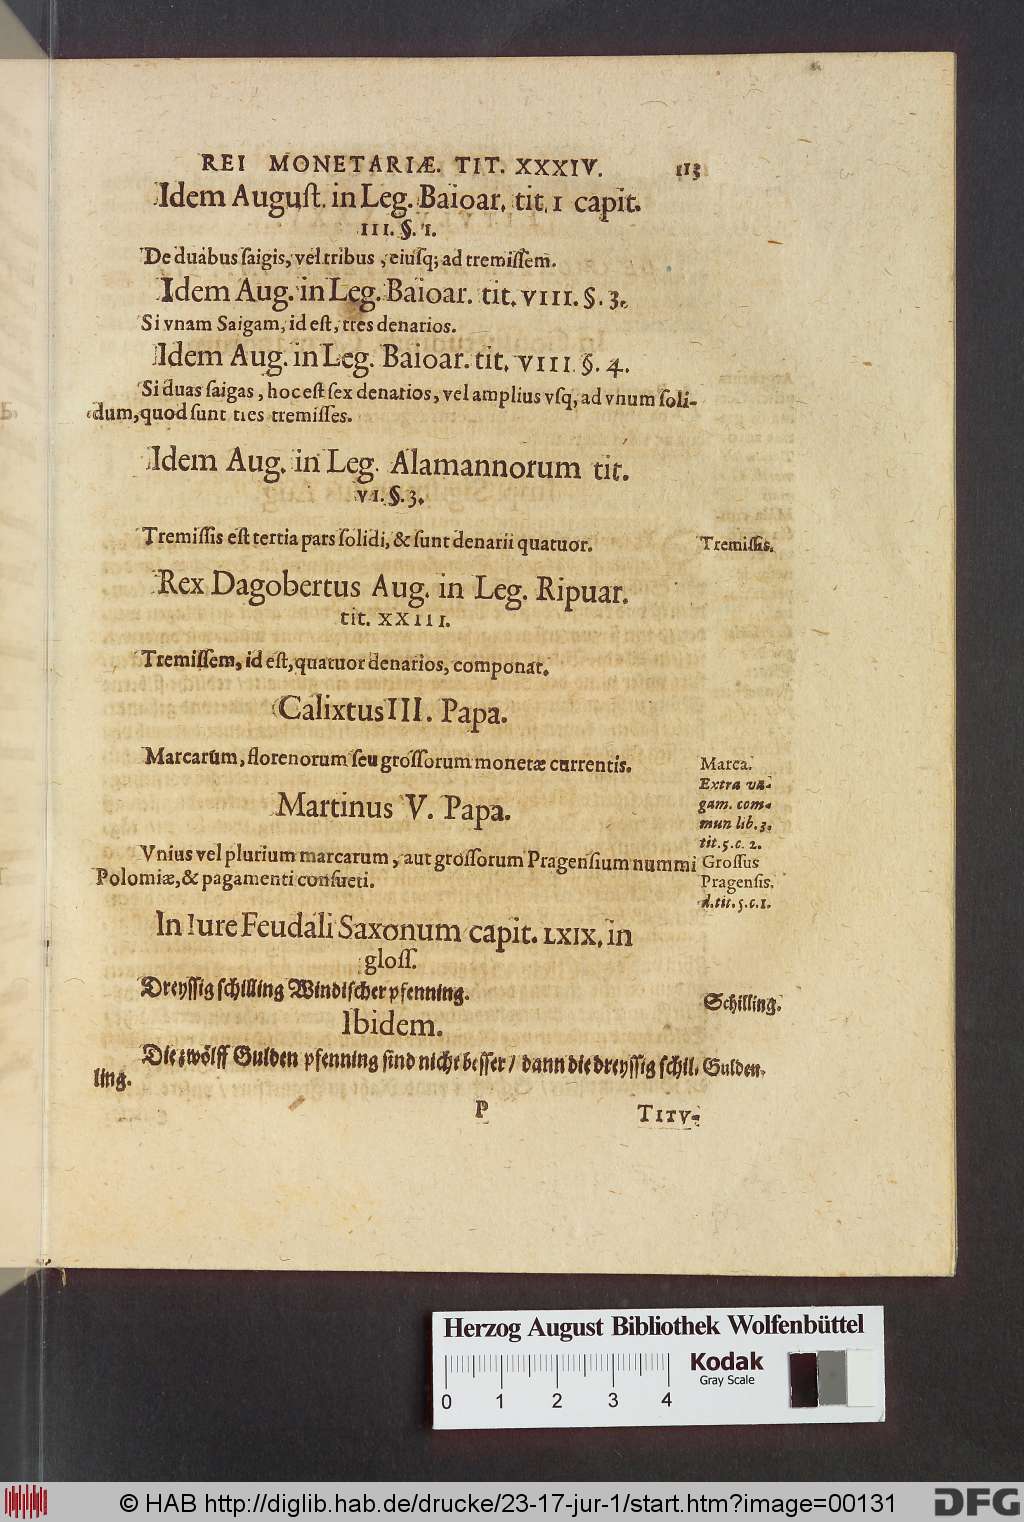 REI MONETARIÆ. TIT. XXXIV. 113
Idem Auguſt. in Leg. Baioar. tit. 1 capit.
III. §. 1.
De duabus ſaigis, vel tribus, eiuſq; ad tremiſſem.
Idem Aug. in Leg. Baioar. tit. VIII. §. 3.
Si vnam Saigam, id eſt, tres denarios.
Idem Aug. in Leg. Baioar. tit. VIII §. 4.
Si duas ſaigas, hoc eſt ſex denarios, vel amplius vſq, ad vnum ſoli-
dum, quod ſunt tres tremiſſes.
Idem Aug. in Leg. Alamannorum tit.
VI. §. 3.
Tremiſſis eſt tertia pars ſolidi, & ſunt denarii quatuor.
Tremiſſis.
Rex Dagobertus Aug. in Leg. Ripuar.
tit. XXIII.
Tremiſſem, id eſt, quatuor denarios, componat.
Calixtus III. Papa.
Marcarum, florenorum ſeu groſſorum monetæ currentis.
Marca.
Extra va-
gam. com-
mun lib. 3.
tit. 5. c. 2.
Martinus V. Papa.
Vnius vel plurium marcarum, aut groſſorum Pragenſium nummi
Polomiæ, & pagamenti conſueti.
Groſſus
Pragenſis.
d. tit. 5. c. 1.
In Iure Feudali Saxonum capit. LXIX. in
gloſſ.
Dreyſſig ſchilling Windiſcher pfenning.
Schilling.
Ibidem.
Die zwölff Gulden pfenning ſind nicht beſſer / dann die dreyſſig ſchil-
ling.
Gulden.
P TITV-
Herzog August Bibliothek Wolfenbüttel
Kodak
Gray Scale
0 1 2 3 4
© HAB http://diglib.hab.de/drucke/23-17-jur-1/start.htm?image=00131
DFG